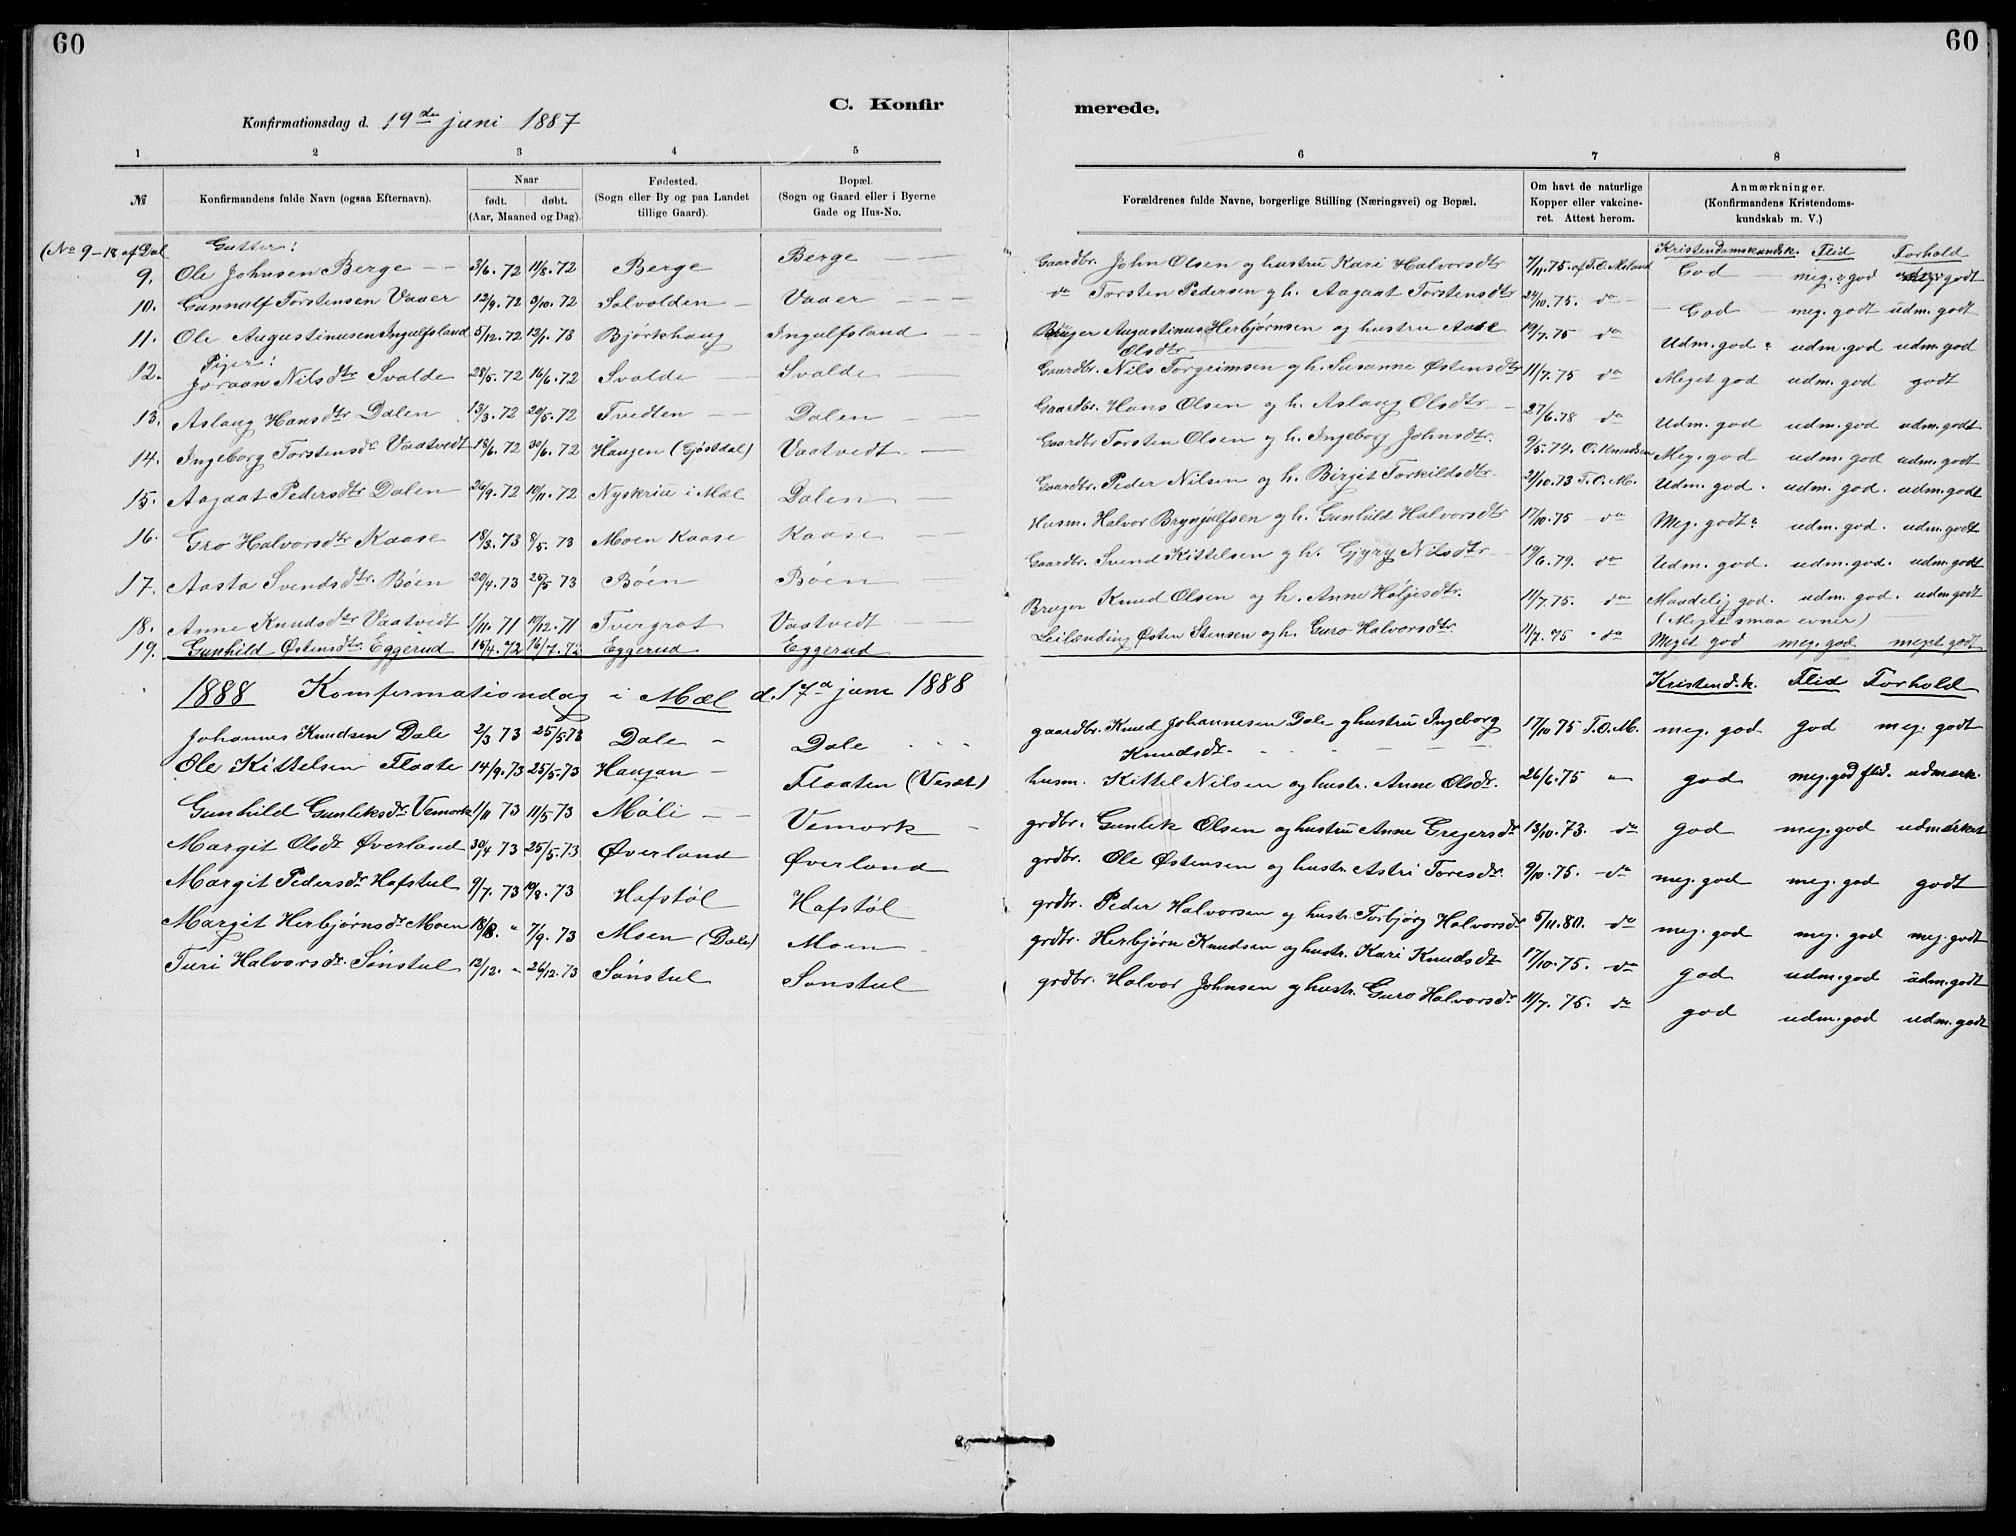 60
60
C. Konfir
merede.
Konfirmationsdag d. 19de juni 1887
1 2 3 4 5 6 7 8
№ Konfirmandens fulde Navn (ogsaa Efternavn). Naar født. døbt. (Aar, Maaned og Dag). Fødested. (Sogn eller By og paa Landet tillige Gaard). Bopæl. (Sogn og Gaard eller i Byerne Gade og Hus-No. Forældrenes fulde Navne, borgerlige Stilling (Næringsvei) og Bopæl. Om havt de naturlige Kopper eller vakcineret. Attest herom. Anmærkninger. (Konfirmandens Kristendomskundskab m. V.)
(No 9-18 af Dal Gutter: Kristendomskundsk. Flid Forhold
9. Ole Johnsen Berge 3/6.72 11/8.72 Berge Berge Gaardbr. John Olsen og hustru Kari Halvorsdtr 7/11.75. af T.O. Mæland God meg. god godt
10. Gunnulf Torstensen Vaaer 12/9.72 3/10.72 Solvolden Vaaer do Torsten Pedersen og h. Aagaat Torstensdtr 24/10.75. do God meg. godt udm. godt
11. Ole Augustinusen Ingulfsland 5/12.72 12/1.73 Bjørkhaug Ingulfsland Bruger Augustinus Herbjørnsen og hustru Aase Olsdtr 19/7.75 do Udm. god udm. god udm. god
Piger:
12. Joraan Nilsdtr Svalde 28/5.72 16/6.72 Svalde Svalde Gaardbr. Nils Torgrimsen og h. Susanne Østensdtr 11/7.75 do Meget god udm. god godt
13. Aslaug Hansdtr Dalen 13/3.72 20/5.72 Tvedten Dalen Gaardbr. Hans Olsen og h. Aslaug Olsdtr 27/6.78 do Udm. god udm. god udm. godt
14. Ingeborg Torstensdr Vaatvedt 18/6.72 30/6.72 Haugen (Gjøstdal) Vaatvedt Gaardbr Torsten Olsen og h. Ingeborg Johnsdtr. 9/5.74. O. Knudsen Meg. god udm. god udm. godt
15. Aagaat Pedersdtr Dalen 26/9.72 10/11.72 Nyskriu i Mæl Dalen Gaardbr. Peder Nilsen og h. Birgit Torkildsdtr. 24/10.73 T.O.M. Udm. god. udm. god. udm. godt
16. Gro Halvorsdtr Kaase 18/3.73 8/5.73 Moen Kaase Kaase Husm. Halvor Brynjulfsen og h. Gunhild Halvorsdtr 17/10.75 do Meg. godt udm. god. udm. godt
17. Aasta Svendsdtr. Bøen 20/4.73 25/5 73 Bøen Bøen Gaardbr. Svend Kittelsen og h. Gjyry Nilsdtr 19/6.79. do Udm. god. udm. god. udm. godt
18. Anne Knudsdtr Vaatvedt 1/11.71 10/12.71 Tvergrot Vaatvedt Bruger Knud Olsen og h. Anne Høljesdtr. 11/7.75. do Maadelig god. udm. god. udm godt
(Meget smaa evner)
19. Gunhild Østensdtr. Eggerud 15/4.72 16/7.72 Eggerud Eggerud Leilænding Østen Stensen og h. Guro Halvorsdtr. 11/7.75 do Meget god meg. god meget godt
1888 Komfirmationdag i Mæl d. 17d juni 1888 Kristend.k. Flid Forhold
Johannes Knudsen Dale 2/3 73 25/5 73 Dale Dale gaardbr. Knud Johannesen Dale og hustru Ingeborg Knudsdr. 17/10 75 T.O.M. meg. god god meg. godt
Ole Kittelsen Flaate 14/9.73 25/5.73 Haugan Flaaten (Vesæt) husm. Kittel Nilsen og hustr. Anne Olsdr. 26/6.75 " god meg. god flid. udmærk.
Gunhild Gunleksdr Vemork 1/11 73 11/5.73 Måli Vemork grdbr. Gunlek Olsen og hustru Anne Gregersdr 13/10.73. do god meg. god udmærket
Margit Olsdr Øverland 30/4 73 25/5.73 Øverland Øverland grdbr. Ole Østensen og hustr. Astri Toresdr. 9/10.75. do meg. god meg. god godt
Margit Pedersdr Hafstul 9/7.73 10/8.73 Hafstøl Hafstøl grdbr. Peder Halvorsen og hustr. Torbjørg Halvorsdr 5/11.80. do meg. god meg. god meg. godt
Margit Herbjørnsdr Moen 18/8. " 7/9.73 Moen (Dale) Moen grdbr. Herbjørn Knudsen og hustr. Kari Knudsdr 17/10.75. do god udm. god udm. godt
Turi Halvorsdr. Sønstul 12/12. " 26/12.73 Sønstul Sønstul grdbr. Halvor Johnsen og hustr. Guro Halvorsdr 11/7.75. do god udm. god udm. godt